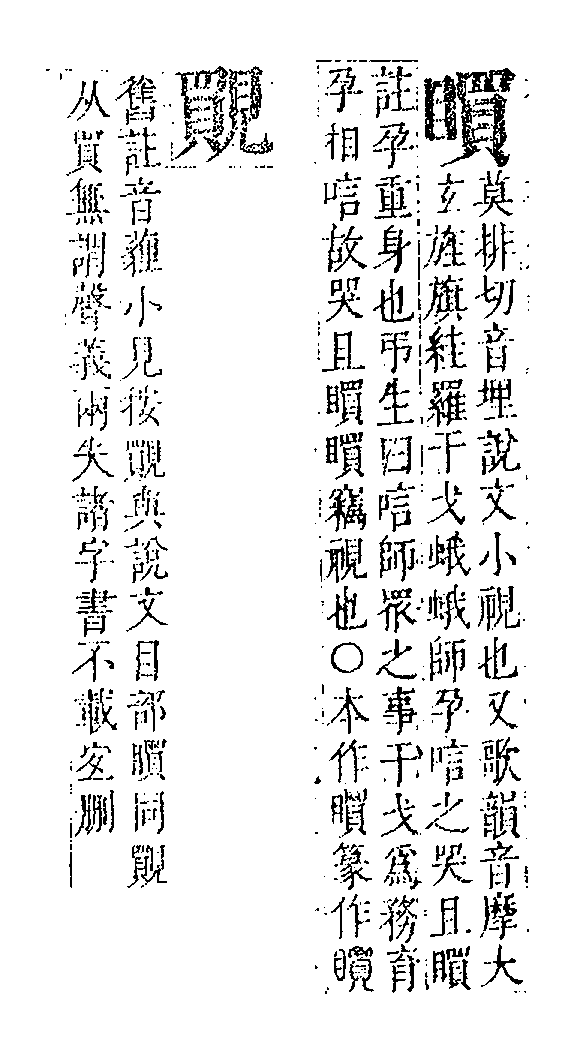 䁲
莫排切音埋說文小視也又歌韻音摩大
玄旌旗絓羅干戈蛾蛾師孕唁之哭且䁲
註孕重身也弔生曰唁師眾之事干戈爲務育
孕相唁故哭且䁲䁲竊視也〇本作䁲篆作
舊註音薶小見按與說文目部䁲同
从買無謂聲義兩失諸字書不載宐刪